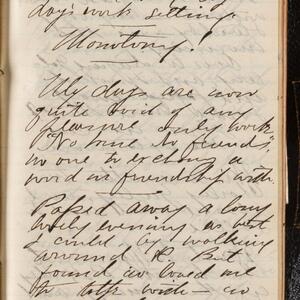 day's work setting
Monotony!
My days are now
quite void of any
pleasure only work
"No time to friends",
no one to exchng a
word in friendship with.
Poked away a long
lonely evening as best
I could by walking
around P. But
found no loved one
to talk with — no